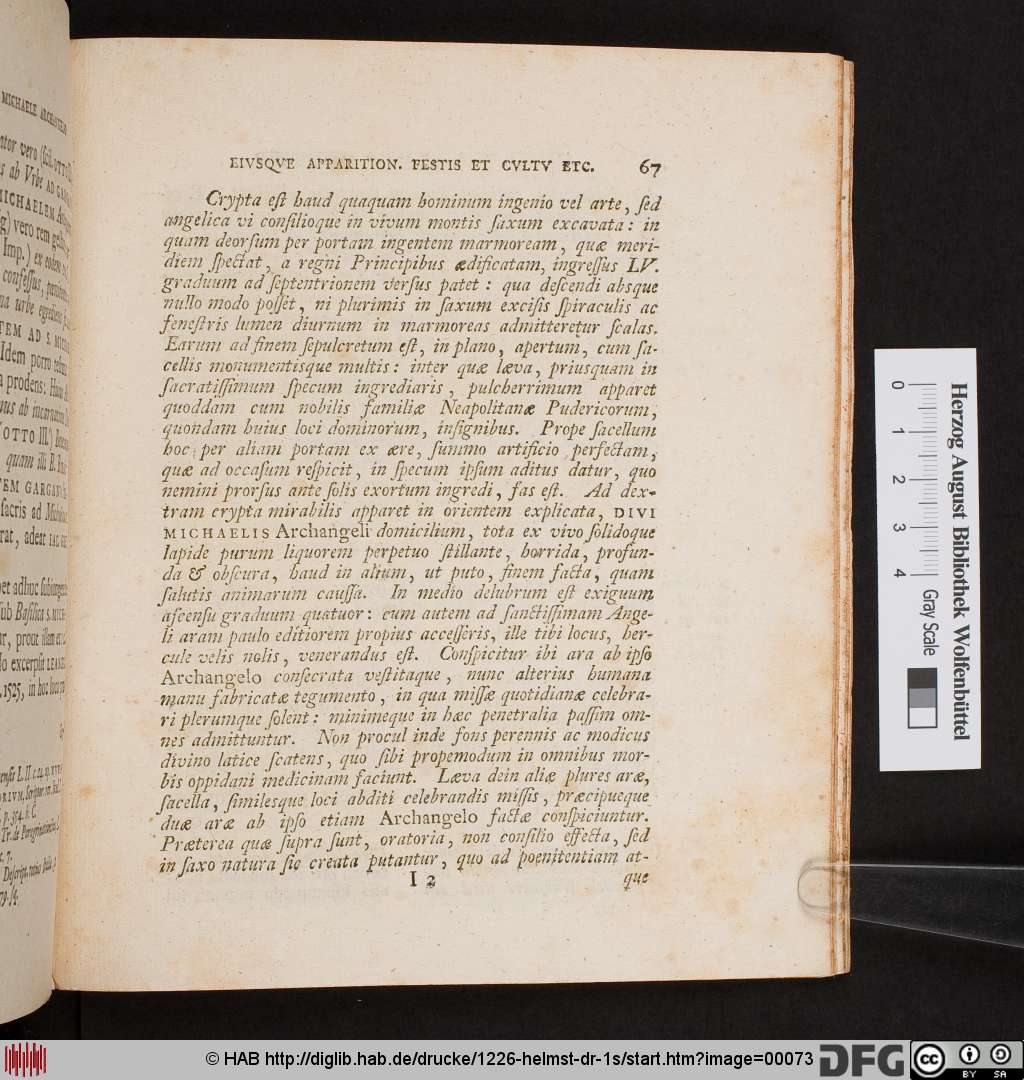 MICHAELE
EIVSQVE APPARITION. FESTIS ET CVLTV ETC. 67
Crypta eſt haud quaquam hominum ingenio vel arte, ſed
angelica vi conſilioque in vivum montis ſaxum excavata: in
quam deorſum per portam ingentem marmoream, quæ meri-
diem ſpectat, a regni Principibus ædificatam, ingreſſus LV.
graduum ad ſeptentrionem verſus patet: qua deſcendi absque
nullo modo poſſet, ni plurimis in ſaxum exciſis ſpiraculis ac
feneſtris lumen diurnum in marmoreas admitteretur ſcalas.
Earum ad finem ſepulcretum eſt, in plano, apertum, cum ſa-
cellis monumentisque multis: inter quæ læva, priusquam in
ſacratiſſimum ſpecum ingrediaris, pulcherrimum apparet
quoddam cum nobilis familiæ Neapolitanæ Pudericorum,
quondam huius loci dominorum, inſignibus. Prope ſacellum
hoc per aliam portam ex ære, ſummo artificio perfectam,
quæ ad occaſum reſpicit, in ſpecum ipſum aditus datur, quo
nemini prorſus ante ſolis exortum ingredi, fas eſt. Ad dex-
tram crypta mirabilis apparet in orientem explicata, DIVI
MICHAELIS Archangeli domicilium, tota ex vivo ſolidoque
lapide purum liquorem perpetuo ſtillante, horrida, profun-
da & obſcura, haud in alium, ut puto, finem facta, quam
ſalutis animarum cauſſa. In medio delubrum eſt exiguum
aſcenſu graduum quatuor: cum autem ad ſanctiſſimam Ange-
li aram paulo editiorem propius acceſſeris, ille tibi locus, her-
cule velis nolis, venerandus eſt. Conſpicitur ibi ara ab ipſo
Archangelo conſecrata veſtitaque, nunc alterius humana
manu fabricatæ tegumento, in qua miſſæ quotidianæ celebra-
ri plerumque ſolent: minimeque in hæc penetralia paſſim om-
nes admittuntur. Non procul inde fons perennis ac modicus
divino latice ſcatens, quo ſibi propemodum in omnibus mor-
bis oppidani medicinam faciunt. Læva dein aliæ plures aræ,
ſacella, ſimilesque loci abditi celebrandis miſſis, præcipueque
duæ aræ ab ipſo etiam Archangelo factæ conſpiciuntur.
Præterea quæ ſupra ſunt, oratoria, non conſilio effecta, ſed
in ſaxo natura ſic creata putantur, quo ad poenitentiam at-
I 2 que
Herzog August Bibliothek Wolfenbüttel
0 1 2 3 4 Gray Scale
© HAB http://diglib.hab.de/drucke/1226-helmst-dr-1s/start.htm?image=00073 DFG cc BY SA